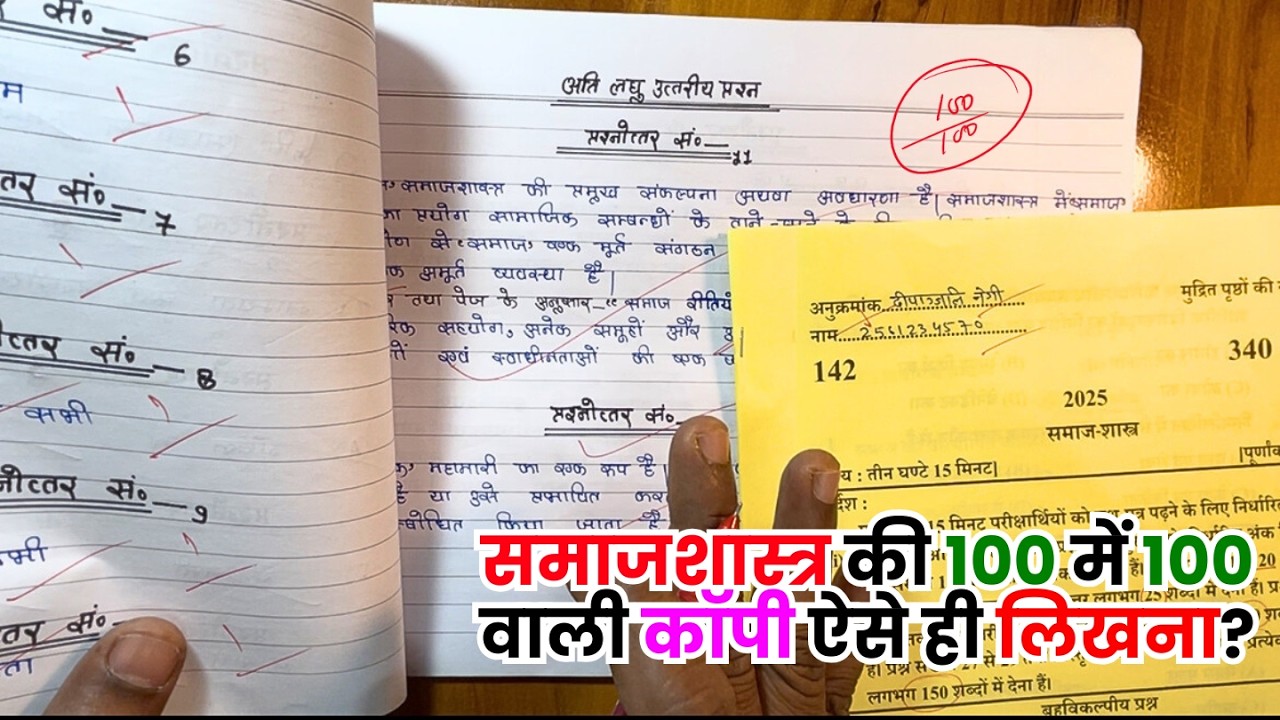 सं०
6
म
तर सं०
7
त्तर सं०
8
सभी
नोत्तर सं०
9
सभी
तर सं०
ता
अति लघु उत्तरीय प्रश्न
100
100
प्रश्नोत्तर सं०
11
समाजशास्त्र की प्रमुख संकल्पना अथवा अवधारणा है। समाजशास्त्र में समाज
का प्रयोग सामाजिक सम्बन्धों के ताने-बाने के
से समाज एक मूर्त संगठन
अमूर्त व्यवस्था है।
तथा पेज के अनुसार “समाज रीतियों
सहयोग, अनेक समूहों और
एवं स्वाधीनताओं की एक
प्रश्नोत्तर सं०
महामारी का एक रूप है।
है या उसे प्रभावित कर
किया जाता है
अनुक्रमांक दीपाञ्जलि नेगी
मुद्रित पृष्ठों की
नाम 2561234570
142
340
2025
समाज-शास्त्र
य : तीन घण्टे 15 मिनट|
|पूर्णांक
र्देश :
15 मिनट परीक्षार्थियों को पढ़ने के लिए निर्धारित
अंक
20
लगभग 25 शब्दों में देना है।
लगभग 150 शब्दों में देना हैं।
बहुविकल्पीय प्रश्न
समाजशास्त्र की 100 में 100
वाली कॉपी ऐसे ही लिखना?